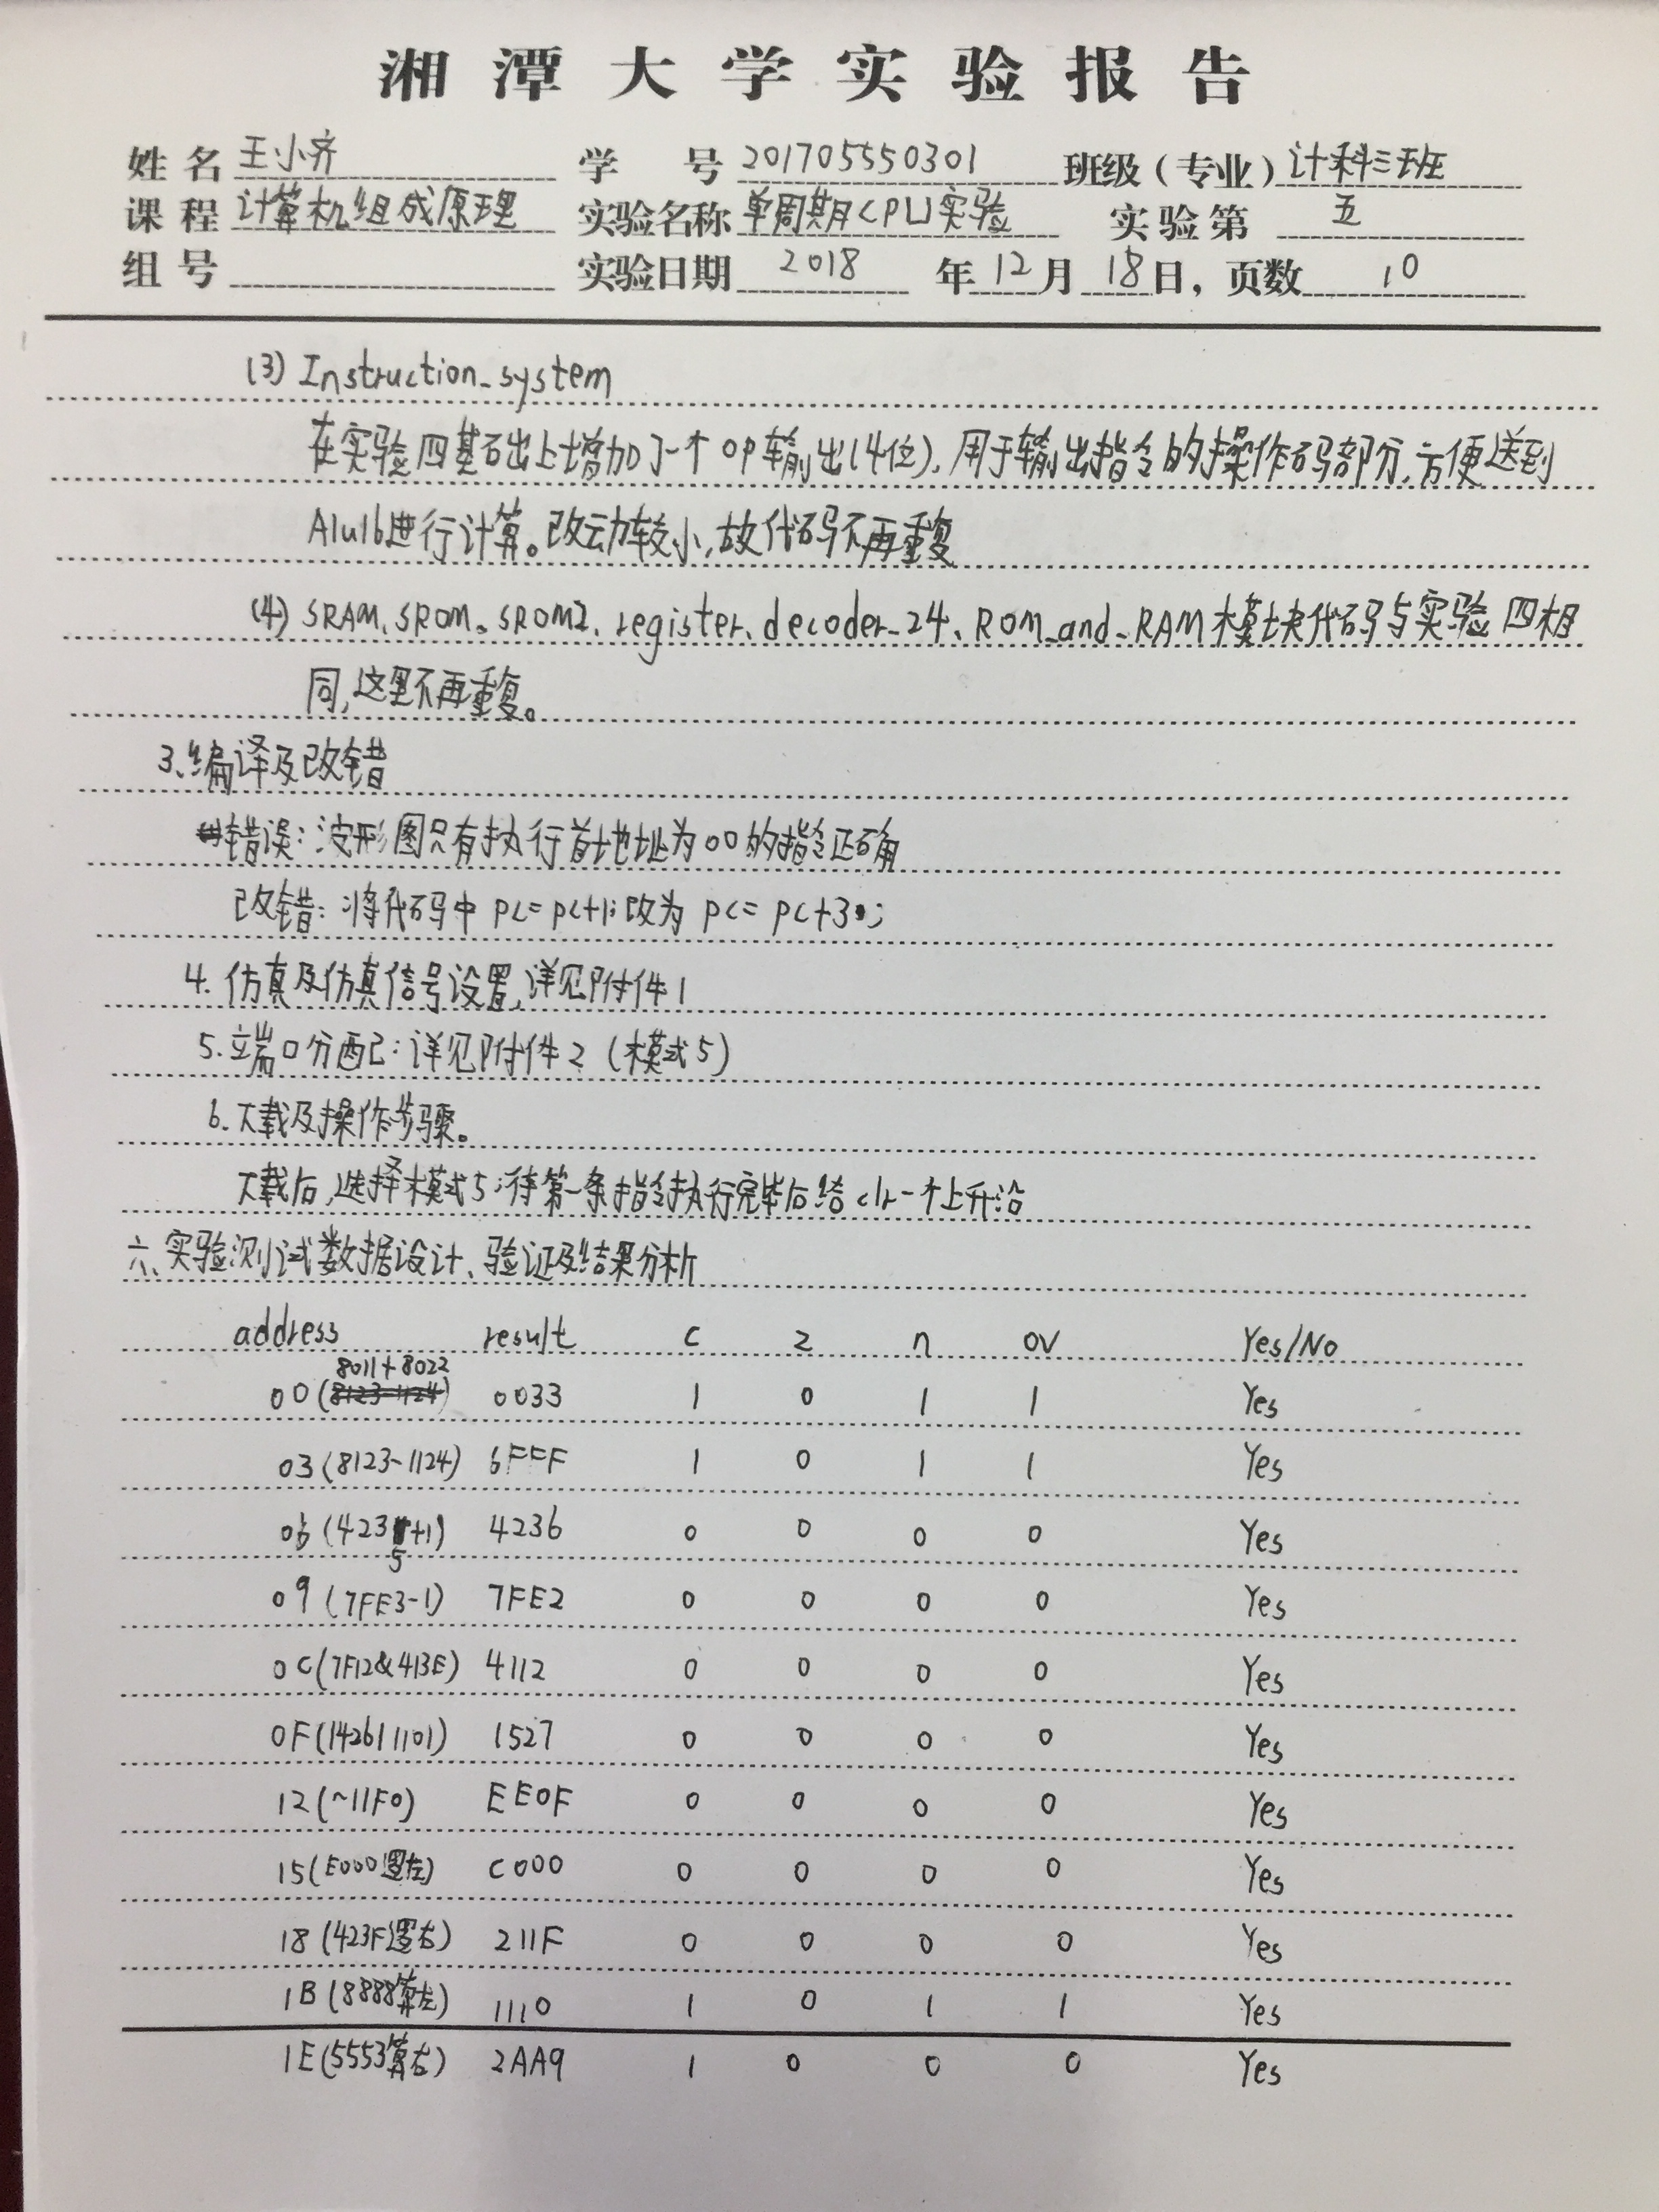 湘潭大学实验报告
姓名 王小齐 学号 201705550301 班级（专业）计科三班
课程 计算机组成原理 实验名称 单周期CPU实验 实验第 五
组号 实验日期 2018 年 12 月 18 日，页数 10
(3) Instruction_system
在实验四基础上增加了一个op输出(4位),用于输出指令的操作码部分,方便送到
Alu16进行计算。改动较小,故代码不再重复
(4) SRAM、SROM、SROM2、register、decoder_24、ROM_and_RAM模块代码与实验四相
同,这里不再重复。
3、编译及改错
错误：波形图只有执行首地址为00的指令正确
改错：将代码中 pc=pc+1;改为 pc=pc+3;
4. 仿真及仿真信号设置,详见附件1
5.端口分配：详见附件2（模式5）
6.下载及操作步骤。
下载后,选择模式5;待第一条指令执行完毕后给clr一个上升沿
六、实验测试数据设计、验证及结果分析
address result c z n ov Yes/No
00(8011+8022) 0033 1 0 1 1 Yes
03(8123-1124) 6FFF 1 0 1 1 Yes
06(4235+1) 4236 0 0 0 0 Yes
09(7FE3-1) 7FE2 0 0 0 0 Yes
0C(7F12&413E) 4112 0 0 0 0 Yes
0F(1426|1101) 1527 0 0 0 0 Yes
12(~11F0) EE0F 0 0 0 0 Yes
15(E000逻左) C000 0 0 0 0 Yes
18(423F逻右) 211F 0 0 0 0 Yes
1B(8888算左) 1110 1 0 1 1 Yes
1E(5553算右) 2AA9 1 0 0 0 Yes